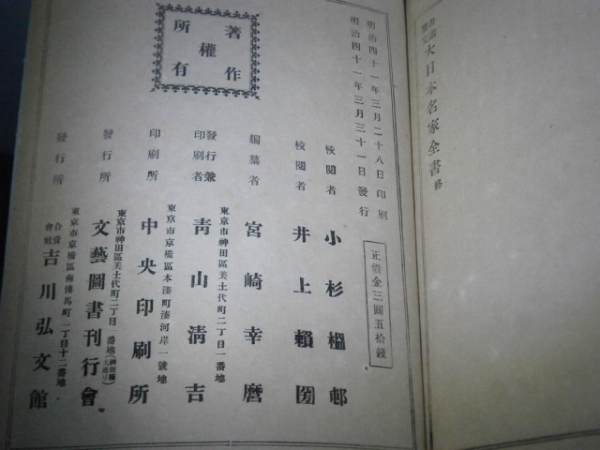 大日本名家全書 終
明治四十一年三月二十八日印刷
明治四十一年三月三十一日發行
正價金三圓五拾錢
著作權所有
校閱者 小杉榲邨
校閱者 井上賴圀
編纂者 宮崎幸麿
東京市神田區美土代町二丁目一番地
發行兼印刷者 靑山淸吉
東京市京橋區本湊町湊河岸一號地
印刷所 中央印刷所
東京市神田區美土代町二丁目一番地(神田橋大通リ)
發行所 文藝圖書刊行會
東京市京橋區南傳馬町一丁目十二番地
發行所 合資會社 吉川弘文館